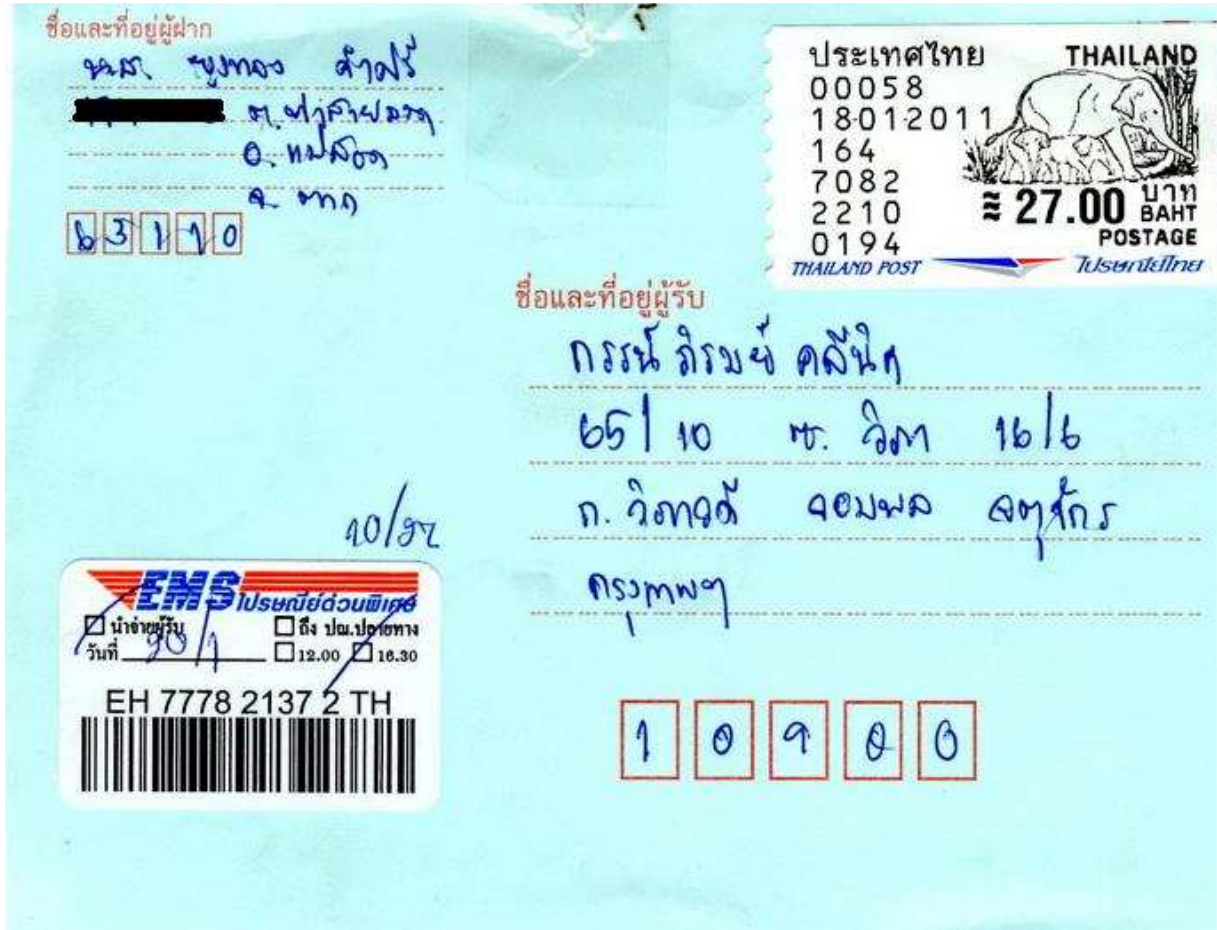 ชื่อและที่อยู่ผู้ฝาก
น.ส. ยูงทอง คำฝรั่
ต. ท่าสายลวด
อ. แม่สอด
จ. ตาก
63110
ประเทศไทย THAILAND
00058
18012011
164
7082
2210
0194
≈ 27.00 บาท BAHT
POSTAGE
THAILAND POST ไปรษณีย์ไทย
ชื่อและที่อยู่ผู้รับ
กรรณ์ภิรมย์ คลีนิค
65/10 ซ. วิภา 16/6
ถ. วิภาวดี จอมพล จตุจักร
กรุงเทพฯ
10900
EMS ไปรษณีย์ด่วนพิเศษ
นำจ่ายผู้รับ ถึง ปณ.ปลายทาง
วันที่ 20/1 12.00 16.30
EH 7778 2137 2 TH